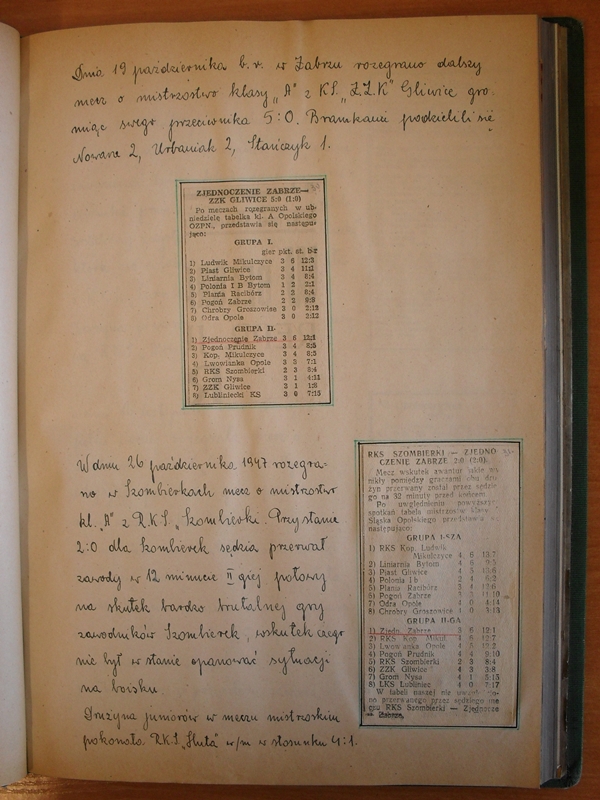 Dnia 19 października b.r. w Zabrzu rozegrano dalszy
mecz o mistrzostwo klasy „A" z KS. „Z.Z.K" Gliwice gro-
miąc swego przeciwnika 5:0. Bramkami podzielili się
Nowara 2, Urbaniak 2, Stańczyk 1.
ZJEDNOCZENIE ZABRZE—
ZZK GLIWICE 5:0 (1:0)
Po meczach rozegranych w ub.
niedzielę tabelka kl. A Opolskiego
OZPN., przedstawia się następu-
jąco:
GRUPA I.
gier pkt. st. br
1) Ludwik Mikulczyce 3 6 12:3
2) Piast Gliwice 3 4 11:1
3) Liniarnia Bytom 3 4 8:4
4) Polonia I B Bytom 1 2 2:1
5) Plania Racibórz 2 2 6:4
6) Pogoń Zabrze 2 2
7) Chrobry Groszowice 3 0 2:12
8) Odra Opole 3 0 2:12
GRUPA II.
1) Zjednoczenie Zabrze 3 6 12:1
2) Pogoń Prudnik 3 4 8:5
3) Kop. Mikulczyce 3 4 8:5
4) Lwowianka Opole 3 3 7:1
5) RKS Szombierki 2 3 6:4
6) Grom Nysa 3 1 4:15
7) ZZK Gliwice 3 1 1:8
8) Lubliniecki KS 3 0 7:15
W dniu 26 października 1947 rozegra-
no w Szombierkach mecz o mistrzostwo
kl. „A" z R.K.S. „Szombierki. Przy stanie
2:0 dla Szombierek sędzia przerwał
zawody w 12 minucie II giej połowy
na skutek bardzo brutalnej gry
zawodników Szombierek, wskutek czego
nie był w stanie opanować sytuacji
na boisku
Drużyna juniorów w meczu mistrzoskim
pokonała R.K.S. „Huta" w/m w stosunku 4:1.
RKS SZOMBIERKI — ZJEDNO
CZENIE ZABRZE 2:0 (2:0).
Mecz wskutek awantur jakie wy
nikły pomiędzy graczami obu dru
żyn przerwany został przez sędzie
go na 32 minuty przed końcem.
Po uwzględnieniu powyższych
spotkań tabela mistrzów klasy
Śląska Opolskiego przedstawia się
następująco:
GRUPA I-SZA
1) RKS Kop. Ludwik
Mikulczyce 4 8 13:7
2) Liniarnia Bytom 4 6 9:5
3) Piast Gliwice 4 5 13:6
4) Polonia I b 2 4 6:2
5) Plania Racibórz 3 4 13:6
6) Pogoń Zabrze 3 3 11:10
7) Odra Opole 4 1 4:14
8) Chrobry Groszowice 4 0 3:13
GRUPA II-GA
1) Zjedn. Zabrze 3 6 12:1
2) RKS Kop. Mikul. 4 6 12:7
3) Lwowianka Opole 4 5 12:2
4) Pogoń Prudnik 4 4 9:10
5) RKS Szombierki 2 3 8:4
6) ZZK Gliwice 4 3 3:8
7) Grom Nysa 4 1 5:15
8) LKS Lubliniec 4 0 7:17
W tabeli naszej nie
no przerwanego przez sędziego me
czu RKS Szombierki — Zjednocze
nie Zabrze.